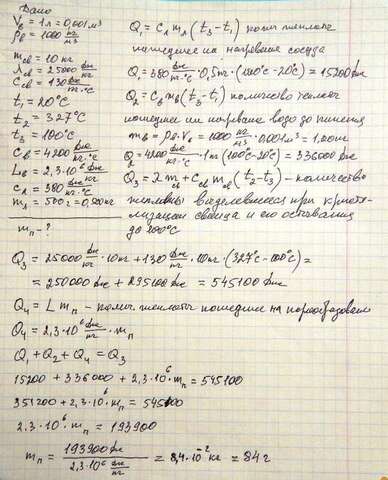 Дано
Vв = 1 л = 0,001 м³
ρв = 1000 кг/м³
mсв = 10 кг
λсв = 25000 Дж/кг
Cсв = 130 Дж/кг·°C
t₁ = 20°C
t₂ = 327°C
t₃ = 100°C
Cв = 4200 Дж/кг·°C
Lв = 2,3·10⁶ Дж/кг
Cл = 380 Дж/кг·°C
mл = 500 г = 0,500 кг
mп - ?
Q₁ = Cл mл (t₃ - t₁) колич теплоты
пошедшее на нагревание сосуда
Q₁ = 380 Дж/кг·°C · 0,5 кг · (100°C - 20°C) = 15200 Дж
Q₂ = Cв mв (t₃ - t₁) количество теплоты
пошедшее на нагревание воды до кипения
mв = ρв · Vв = 1000 кг/м³ · 0,001 м³ = 1,00 кг
Q₂ = 4200 Дж/кг·°C · 1 кг (100°C - 20°C) = 336000 Дж
Q₃ = λ mсв + Cсв mсв (t₂ - t₃) - количество
теплоты выделившееся при кристал-
лизации свинца и его остывания
до 100°C
Q₃ = 25000 Дж/кг · 10 кг + 130 Дж/кг · 10 кг · (327°C - 100°C) =
= 250000 Дж + 295100 Дж = 545100 Дж
Q₄ = L mп - колич. теплоты пошедшее на парообразован
Q₄ = 2,3·10⁶ Дж/кг · mп
Q₁ + Q₂ + Q₄ = Q₃
15200 + 336000 + 2,3·10⁶ · mп = 545100
351200 + 2,3·10⁶ · mп = 545100
2,3·10⁶ · mп = 193900
mп = 193900 Дж / 2,3·10⁶ Дж/кг = 8,4·10⁻² кг = 84 г